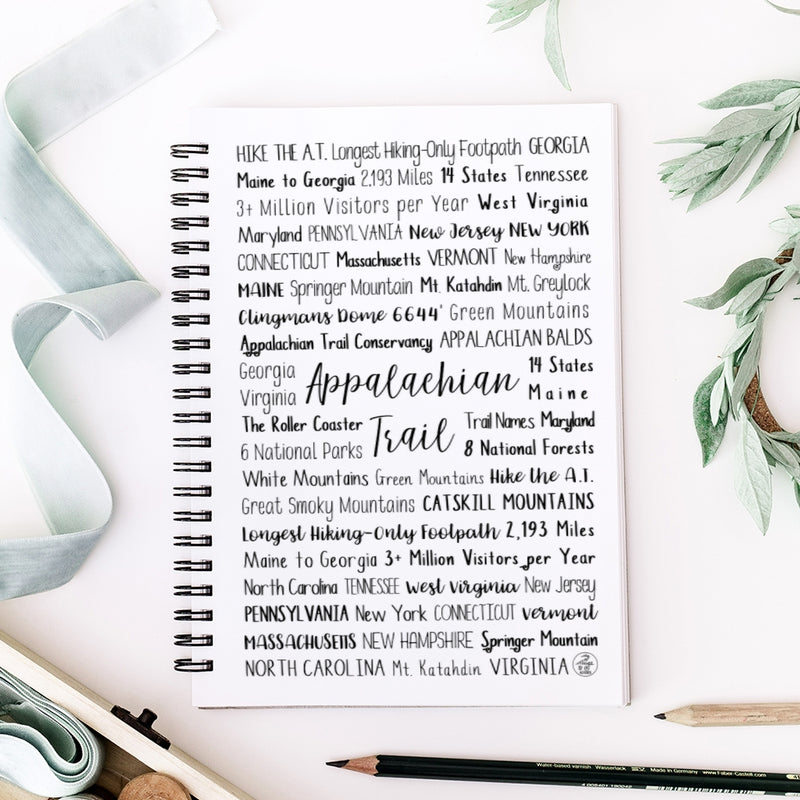 HIKE THE A.T. Longest Hiking-Only Footpath GEORGIA
Maine to Georgia 2,193 Miles 14 States Tennessee
3+ Million Visitors per Year West Virginia
Maryland PENNSYLVANIA New Jersey NEW YORK
CONNECTICUT Massachusetts VERMONT New Hampshire
MAINE Springer Mountain Mt. Katahdin Mt. Greylock
Clingmans Dome 6644' Green Mountains
Appalachian Trail Conservancy APPALACHIAN BALDS
Georgia
Virginia
Appalachian
14 States
Maine
The Roller Coaster
6 National Parks
Trail
Trail Names Maryland
8 National Forests
White Mountains Green Mountains Hike the A.T.
Great Smoky Mountains CATSKILL MOUNTAINS
Longest Hiking-Only Footpath 2,193 Miles
Maine to Georgia 3+ Million Visitors per Year
North Carolina TENNESSEE West Virginia New Jersey
PENNSYLVANIA New York CONNECTICUT Vermont
MASSACHUSETTS NEW HAMPSHIRE Springer Mountain
NORTH CAROLINA Mt. Katahdin VIRGINIA
Water-based varnish Wasserlack Made in Germany www.Faber-Castell.com